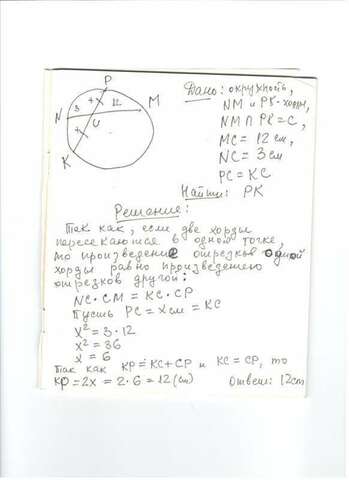 P
3
12
N
M
C
K
Дано: окружность,
NM и PK - хорды,
NM ∩ PK = C,
MC = 12 см,
NC = 3 см
PC = KC
Найти: PK
Решение:
Так как, если две хорды
пересекаются в одной точке,
то произведение отрезков одной
хорды равно произведению
отрезков другой:
NC · CM = KC · CP
Пусть PC = x см = KC
x² = 3 · 12
x² = 36
x = 6
Так как KP = KC + CP и KC = CP, то
KP = 2x = 2 · 6 = 12 (см)
Ответ: 12 см